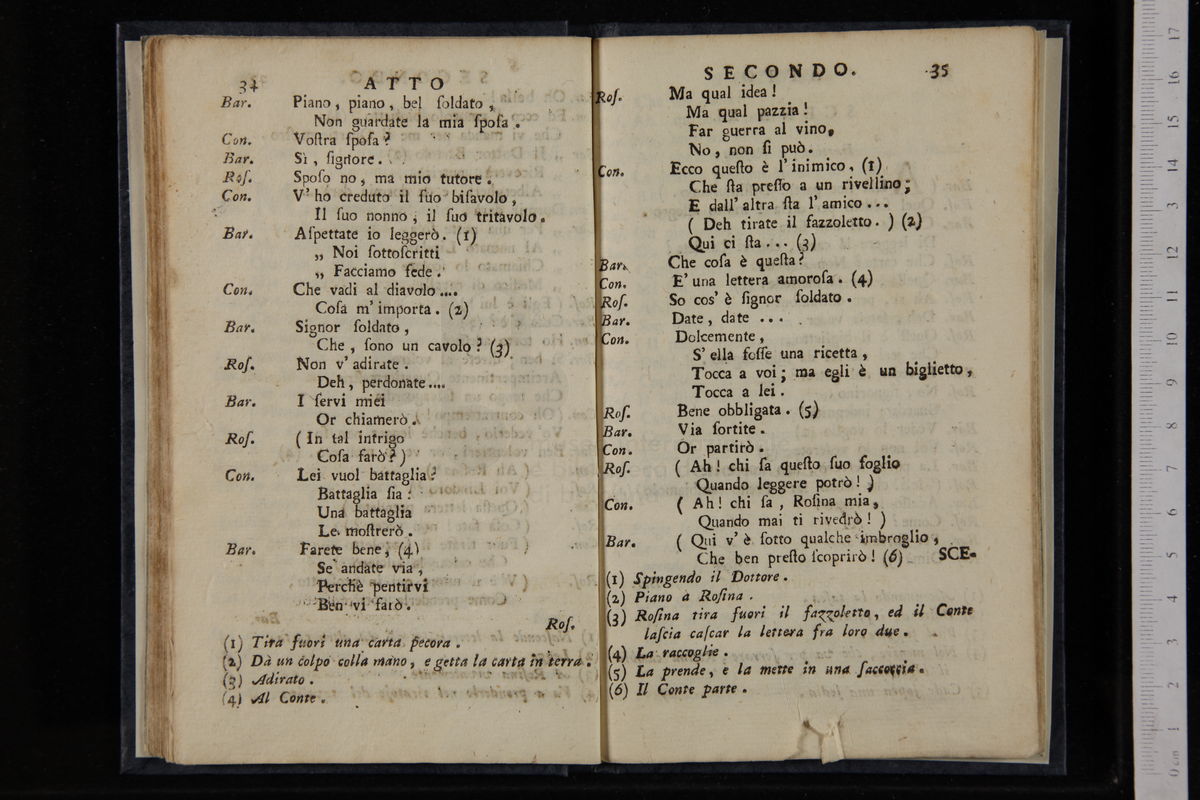 34 ATTO
Bar. Piano, piano, bel ſoldato,
Non guardate la mia ſpoſa.
Con. Voſtra ſpoſa?
Bar. Sì, ſignore.
Roſ. Spoſo no, ma mio tutore.
Con. V' ho creduto il ſuo biſavolo,
Il ſuo nonno, il ſuo tritavolo.
Bar. Aſpettate io leggerò. (1)
„ Noi ſottoſcritti
„ Facciamo fede.
Con. Che vadi al diavolo....
Coſa m' importa. (2)
Bar. Signor ſoldato,
Che, ſono un cavolo? (3)
Roſ. Non v' adirate.
Deh, perdonate....
Bar. I ſervi miei
Or chiamerò.
Roſ. (In tal intrigo
Coſa farò?)
Con. Lei vuol battaglia?
Battaglia ſia:
Una battaglia
Le moſtrerò.
Bar. Farete bene, (4)
Se andate via,
Perchè pentirvi
Ben vi farò.
Roſ.
(1) Tira fuori una carta pecora.
(2) Dà un colpo colla mano, e getta la carta in terra.
(3) Adirato.
(4) Al Conte.
SECONDO. 35
Roſ. Ma qual idea!
Ma qual pazzia!
Far guerra al vino,
No, non ſi può.
Con. Ecco queſto è l' inimico, (1)
Che ſta preſſo a un rivellino;
E dall' altra ſta l' amico...
(Deh tirate il fazzoletto.) (2)
Qui ci ſta... (3)
Bar. Che coſa è queſta?
Con. E' una lettera amoroſa. (4)
Roſ. So cos' è ſignor ſoldato.
Bar. Date, date ...
Con. Dolcemente,
S' ella foſſe una ricetta,
Tocca a voi; ma egli è un biglietto,
Tocca a lei.
Roſ. Bene obbligata. (5)
Bar. Via ſortite.
Con. Or partirò.
Roſ. (Ah! chi ſa queſto ſuo foglio
Quando leggere potrò!)
Con. (Ah! chi ſa, Roſina mia,
Quando mai ti rivedrò!)
Bar. (Qui v' è ſotto qualche imbroglio,
Che ben preſto ſcoprirò! (6) SCE-
(1) Spingendo il Dottore.
(2) Piano a Roſina.
(3) Roſina tira fuori il fazzoletto, ed il Conte
laſcia caſcar la lettera fra loro due.
(4) La raccoglie.
(5) La prende, e la mette in una ſaccoccia.
(6) Il Conte parte.
0 cm 1 2 3 4 5 6 7 8 9 10 11 12 13 14 15 16 17